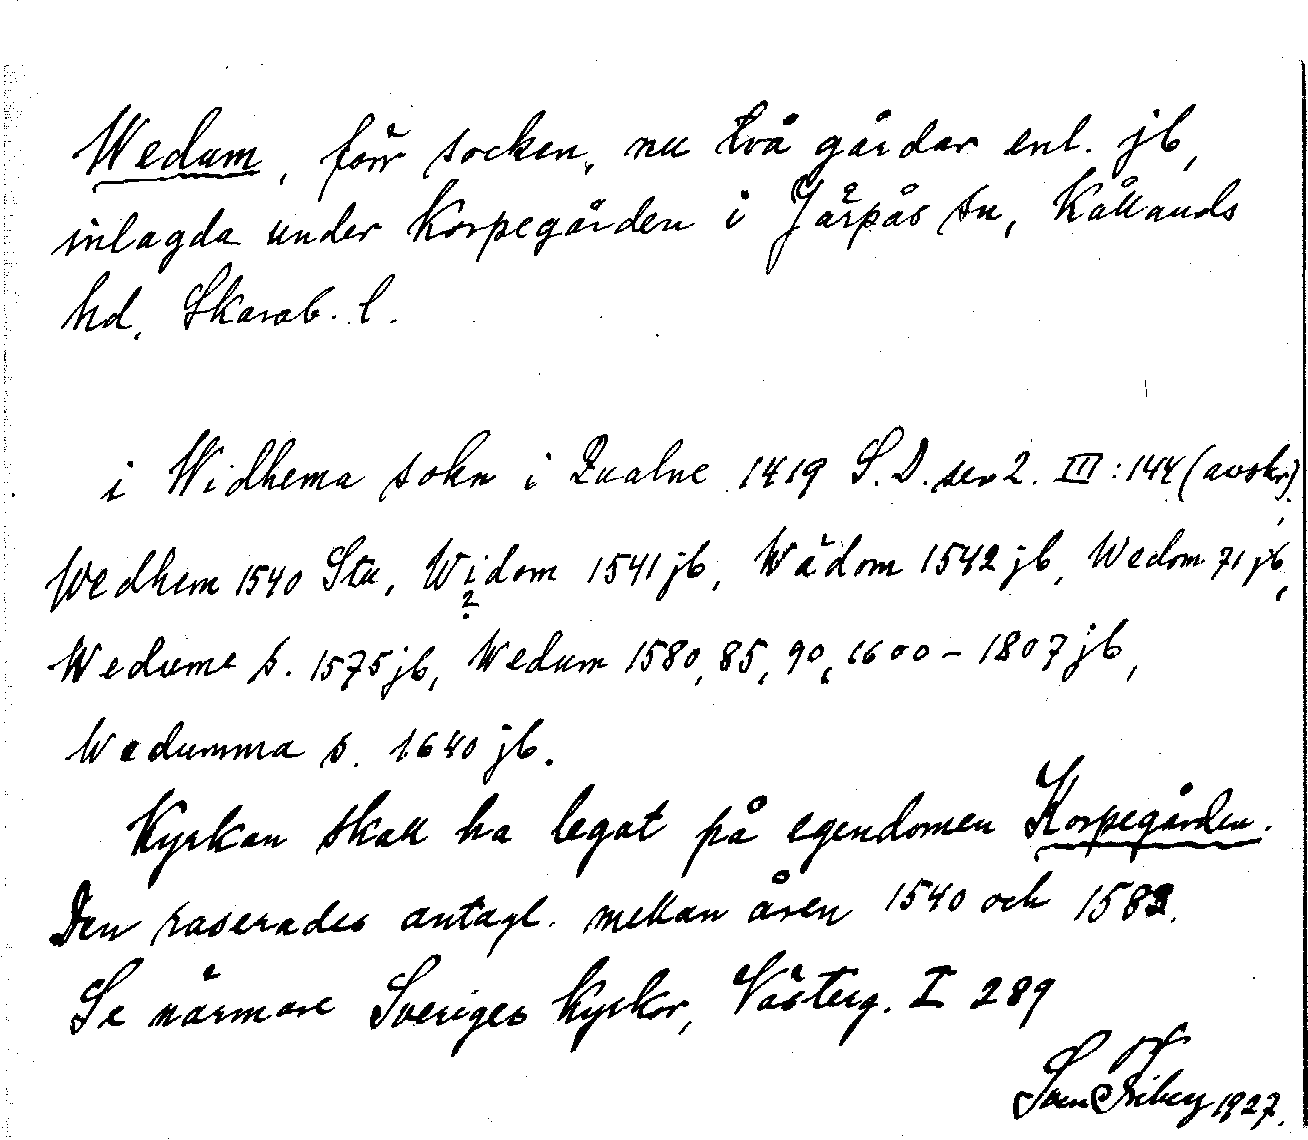 Wedum, förr socken, nu två gårdar enl. jb,
inlagda under Korpegården i Järpås sn, Kållands
hd, Skarab. l.
i Widhema sokn i Qualne 1419 S.D. ser 2. III: 144 (avskr),
Wedhem 1540 Stu, Widom 1541 jb, Wädom 1542 jb, Wedom 71 jb,
?
Wedume s. 1575 jb, Wedum 1580, 85, 90, 1600 - 1807 jb,
Wedumma s. 1640 jb.
Kyrkan skall ha legat på egendomen Korpegården.
Den raserades antagl. mellan åren 1540 och 1583.
Se närmare Sveriges Kyrkor, Västerg. I 289
Sven Friberg 1927.